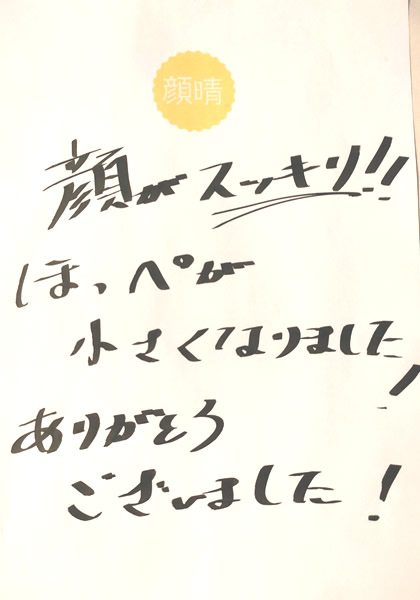 顔晴
顔がスッキリ!!
ほっぺが
小さくなりました!
ありがとう
ございました!